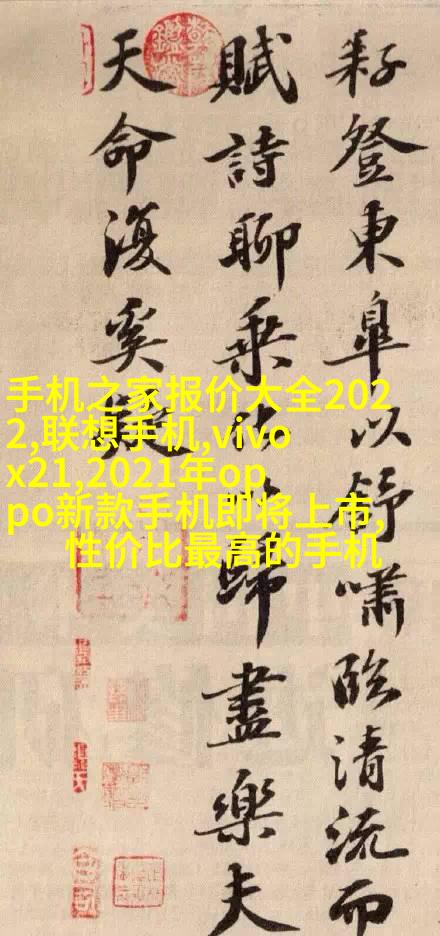 耔登東皋以舒嘯臨清流而
賦詩聊乘化以歸盡樂夫
天命復奚疑
手机之家报价大全202
2,联想手机,vivo
x21,2021年op
po新款手机即将上市,
性价比最高的手机